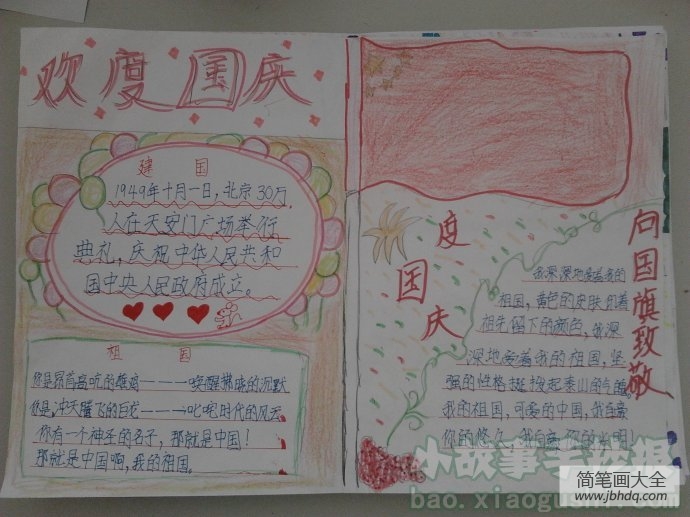 欢度国庆
建国
1949年十月一日，北京30万
人在天安门广场举行
典礼，庆祝中华人民共和
国中央人民政府成立。
祖国
你是昂首高吭的雄鸡———唤醒拂晓的沉默
你是，冲天腾飞的巨龙———叱咤时代的风云
你有一个神圣的名子，那就是中国！
那就是中国啊，我的祖国。
度国庆
向国旗致敬
我深深地爱着我的
祖国，黄色的皮肤
祖先留下的颜色，我深
深地爱着我的祖国，坚
强的性格挺拔起泰山的气慨
我的祖国，可爱的中国，我自豪
你的悠久，我自豪你的光明！
小故事手抄报
bao.xiaogushi.com
简笔画大全
www.jbhdq.com